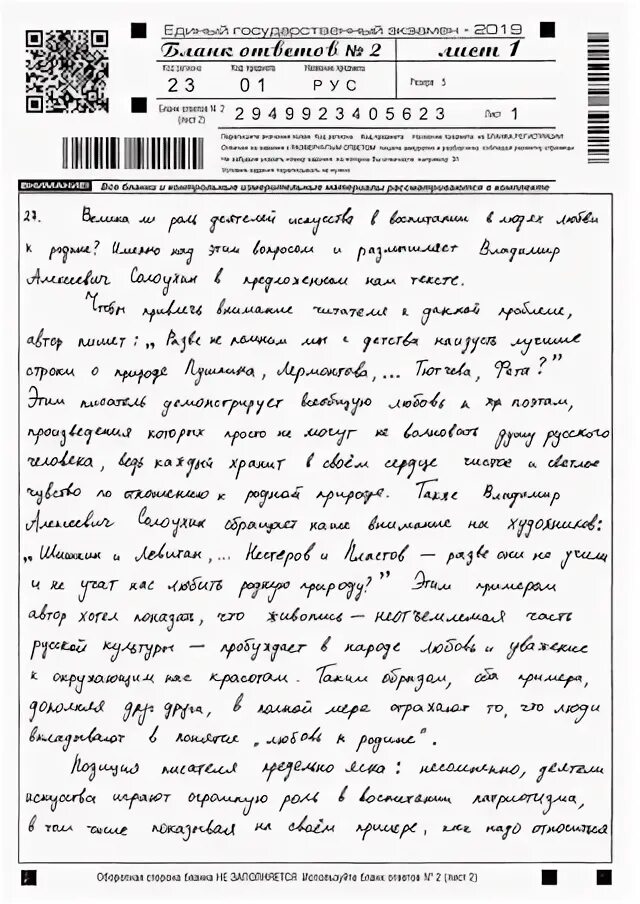 Единый государственный экзамен - 2019
Бланк ответов № 2 лист 1
Код региона Код предмета Название предмета
23 01 РУС Резерв 5
Бланк ответов № 2
(лист 2) 2949923405623 Лист 1
ВНИМАНИЕ! Все бланки и контрольные измерительные материалы рассматриваются в комплекте
27. Велика ли роль деятелей искусства в воспитании в людях любви
к родине? Именно над этим вопросом и размышляет Владимир
Алексеевич Солоухин в предложенном нам тексте.
Чтобы привлечь внимание читателя к данной проблеме,
автор пишет: „Разве не помним мы с детства наизусть лучшие
строки о природе Пушкина, Лермонтова,... Тютчева, Фета?"
Этим писатель демонстрирует всеобщую любовь к поэтам,
произведения которых просто не могут не волновать душу русского
человека, ведь каждый хранит в своём сердце чистое и светлое
чувство по отношению к родной природе. Также Владимир
Алексеевич Солоухин обращает наше внимание на художников:
„Шишкин и Левитан,... Нестеров и Пластов — разве они не учили
и не учат нас любить родную природу?" Этим примером
автор хотел показать, что живопись — неотъемлемая часть
русской культуры — пробуждает в народе любовь и уважение
к окружающим нас красотам. Таким образом, оба примера,
дополняя друг друга, в полной мере отражают то, что люди
вкладывают в понятие „любовь к родине".
Позиция писателя предельно ясна: несомненно, деятели
искусства играют огромную роль в воспитании патриотизма,
в том числе показывая на своём примере, как надо относиться
Оборотная сторона бланка НЕ ЗАПОЛНЯЕТСЯ. Используйте бланк ответов № 2 (лист 2)